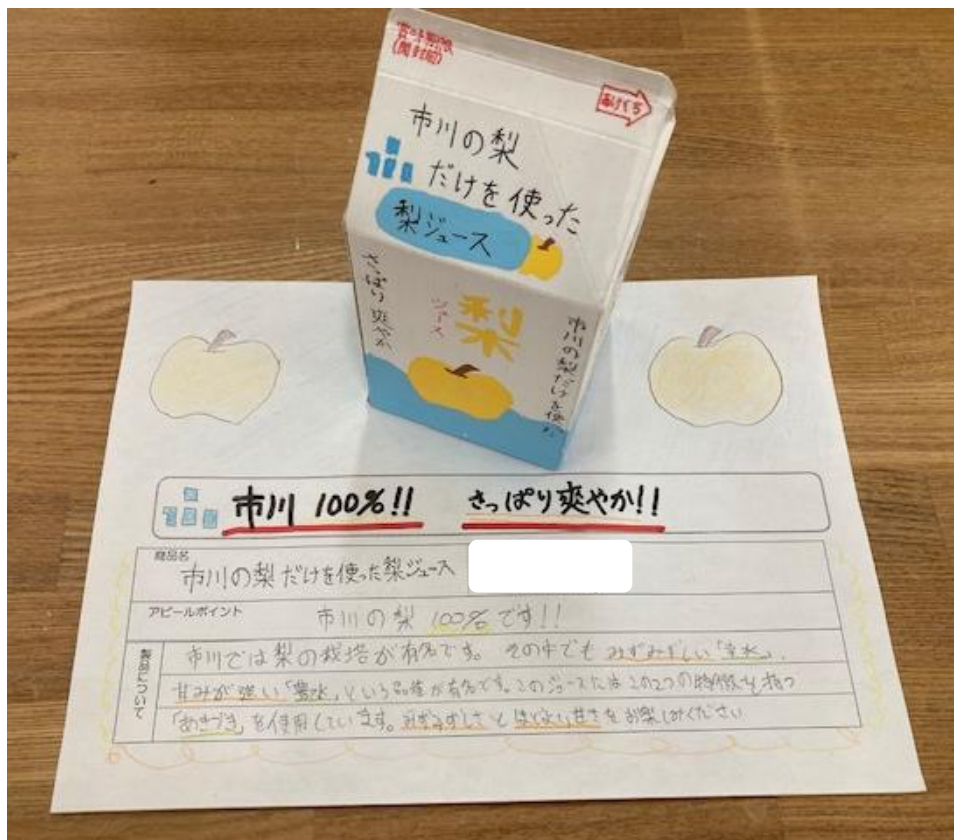 賞味期限
(開封前)
あけくち
市川の梨
だけを使った
梨ジュース
さっぱり爽やか
梨
ジュース
市川の梨だけを使った
市川 100%!! さっぱり爽やか!!
商品名
市川の梨だけを使った梨ジュース
アピールポイント
市川の梨 100%です!!
製品について
市川では梨の栽培が有名です。その中でもみずみずしい「幸水」、
甘みが強い「豊水」という品種が有名です。このジュースにはこの2つの特徴を持つ
「あきづき」を使用しています。みずみずしさとほどよい甘さをお楽しみください